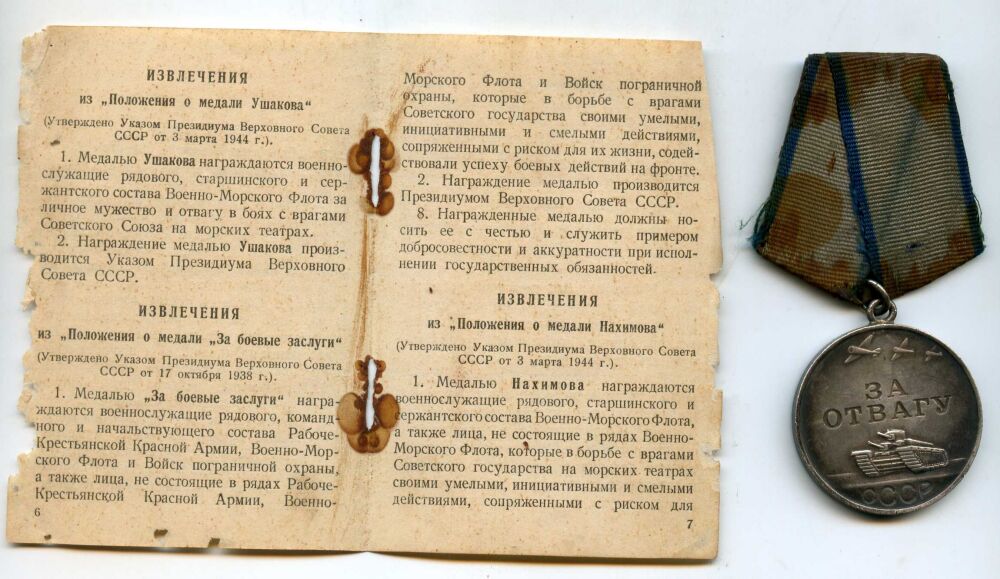 ИЗВЛЕЧЕНИЯ
из „Положения о медали Ушакова“
(Утверждено Указом Президиума Верховного Совета
СССР от 3 марта 1944 г.).
1. Медалью Ушакова награждаются военно-
служащие рядового, старшинского и сер-
жантского состава Военно-Морского Флота за
личное мужество и отвагу в боях с врагами
Советского Союза на морских театрах.
2. Награждение медалью Ушакова произ-
водится Указом Президиума Верховного
Совета СССР.
ИЗВЛЕЧЕНИЯ
из „Положения о медали „За боевые заслуги“
(Утверждено Указом Президиума Верховного Совета
СССР от 17 октября 1938 г.).
1. Медалью „За боевые заслуги" награ-
ждаются военнослужащие рядового, команд-
ного и начальствующего состава Рабоче-
Крестьянской Красной Армии, Военно-Мор-
ского Флота и Войск пограничной охраны,
а также лица, не состоящие в рядах Рабоче-
Крестьянской Красной Армии, Военно-
6
Морского Флота и Войск пограничной
охраны, которые в борьбе с врагами
Советского государства своими умелыми,
инициативными и смелыми действиями,
сопряженными с риском для их жизни, содей-
ствовали успеху боевых действий на фронте.
2. Награждение медалью производится
Президиумом Верховного Совета СССР.
8. Награжденные медалью должны но-
сить ее с честью и служить примером
добросовестности и аккуратности при испол-
нении государственных обязанностей.
ИЗВЛЕЧЕНИЯ
из „Положения о медали Нахимова“
(Утверждено Указом Президиума Верховного Совета
СССР от 3 марта 1944 г.).
1. Медалью Нахимова награждаются
военнослужащие рядового, старшинского и
сержантского состава Военно-Морского Флота,
а также лица, не состоящие в рядах Военно-
Морского Флота, которые в борьбе с врагами
Советского государства на морских театрах
своими умелыми, инициативными и смелыми
действиями, сопряженными с риском для
7
ЗА
ОТВАГУ
СССР